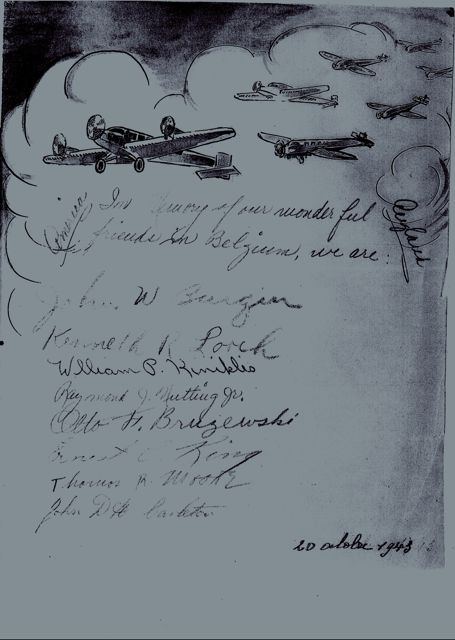 America
In memory of our wonderful
friends in Belgium, we are:
England
John W Burgin
Kenneth R Lorch
William P. Kinkles
Raymond J. Nutting Jr.
Otto F. Bruzewski
Ernest C King
Thomas R. Moore
John Carleton
20 octobre 1943